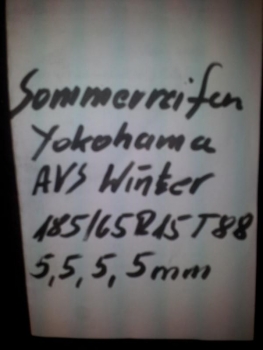 Sommerreifen
Yokohama
AVS Winter
185/65R15 T88
5,5,5,5mm